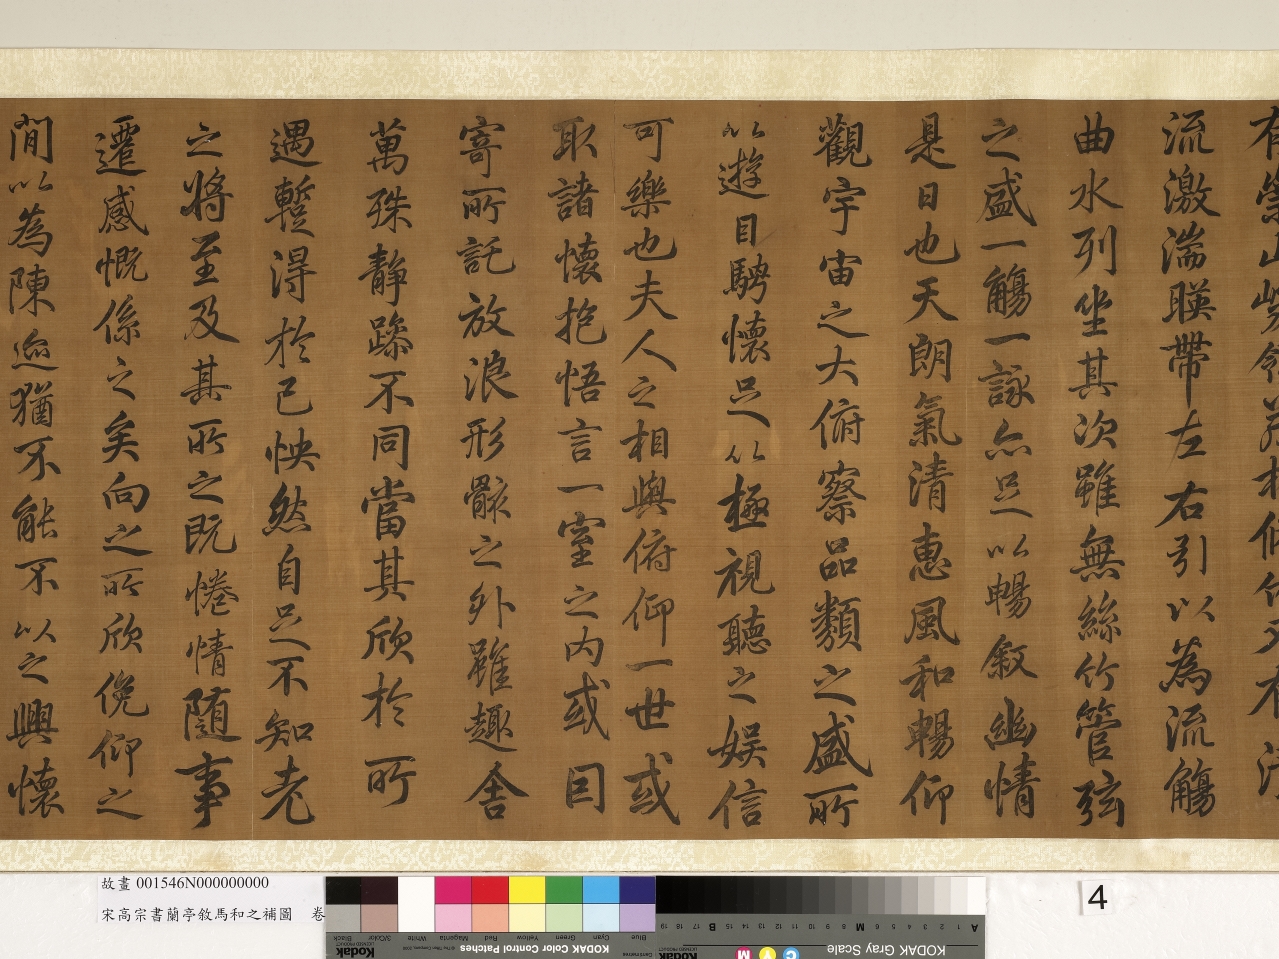 有崇山峻領茂林脩竹又有清
流激湍暎帶左右引以為流觴
曲水列坐其次雖無絲竹管弦
之盛一觴一詠亦足以暢敘幽情
是日也天朗氣清惠風和暢仰
觀宇宙之大俯察品類之盛所
以遊目騁懷足以極視聽之娛信
可樂也夫人之相與俯仰一世或
取諸懷抱悟言一室之內或因
寄所託放浪形骸之外雖趣舍
萬殊靜躁不同當其欣於所
遇蹔得於己怏然自足不知老
之將至及其所之既惓情隨事
遷感慨係之矣向之所欣俛仰之
閒以為陳迹猶不能不以之興懷
故畫 001546N000000000
宋高宗書蘭亭敘馬和之補圖 卷
4
Blue Cyan Green Yellow Red Magenta White 3/Color Black
Kodak
KODAK Color Control Patches
KODAK Gray Scale
C Y M
A 1 2 3 4 5 6 M 8 9 10 11 12 13 14 15 B 17 18 19
Kodak